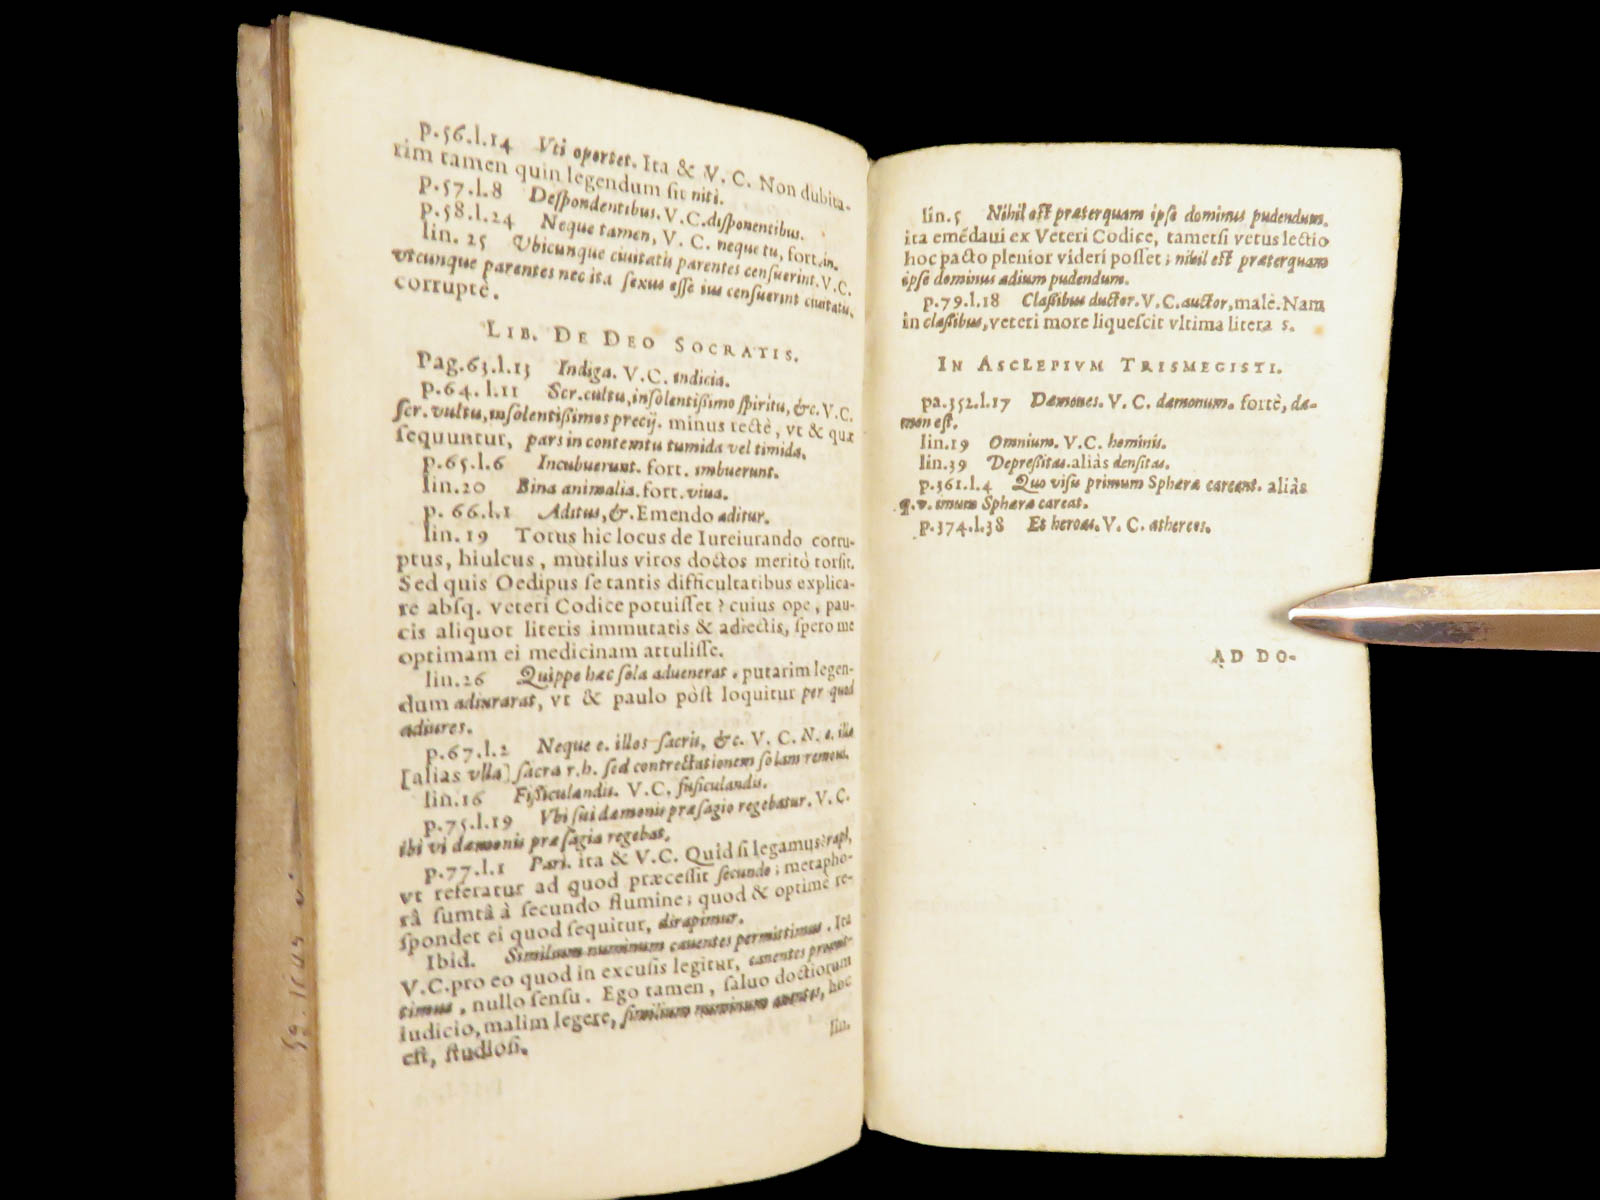 p.56.l.14 Vti oportet. Ita & V. C. Non dubita-
rim tamen quin legendum sit niti.
p.57.l.8 Deſpondentibus. V.C. diſponentibus.
p.58.l.24 Neque tamen, V. C. neque tu, fort. in.
lin. 25 Vbicunque ciuitatis parentes cenſuerint. V.C.
vtcunque parentes nec ita ſexus eſſe ius cenſuerint ciuitatu,
corruptè.
LIB. DE DEO SOCRATIS.
Pag.63.l.13 Indiga. V.C. indicia.
p.64. l.11 Scr. cultu, inſolentiſſimo ſpiritu, &c. V.C.
ſcr. vultu, inſolentiſſimos precij. minus rectè, vt & quæ
ſequuntur, pars in contemtu tumida vel timida.
p.65.l.6 Incubuerunt. fort. imbuerunt.
lin.20 Bina animalia. fort. viua.
p. 66.l.1 Aditus, &. Emendo aditur.
lin. 19 Totus hic locus de Iureiurando corru-
ptus, hiulcus, mutilus viros doctos meritò torſit.
Sed quis Oedipus ſe tantis difficultatibus explica-
re abſq. veteri Codice potuiſſet? cuius ope, pau-
cis aliquot literis immutatis & adiectis, ſpero me
optimam ei medicinam attuliſſe.
lin.26 Quippe hæc ſola aduenerat. putarim legen-
dum adiurarat, vt & paulo pòſt loquitur per quod
adiures.
p.67.l.2 Neque e. illos ſacris, &c. V. C. N. e. illa
[alias vlla] ſacra r.h. ſed contrectationem ſolam remoui.
lin.16 Fiſſiculandis. V.C. fuſiculandis.
p.75.l.19 Vbi ſui dæmonis præſagio regebatur. V.C.
ibi vi dæmonis præſagia regebat.
p.77.l.1 Pari. ita & V.C. Quid ſi legamus rapi,
vt referatur ad quod præceſſit ſecundo; metapho-
râ ſumtâ à ſecundo flumine; quod & optimè re-
ſpondet ei quod ſequitur, diripimur.
Ibid. Similium numinum cauentes permittimus. Ita
V.C. pro eo quod in excuſis legitur, canentes promit-
timus, nullo ſenſu. Ego tamen, ſaluo doctiorum
iudicio, malim legere, ſimilium numinum auentes, hoc
eſt, ſtudioſi.
lin.
lin.5 Nihil eſt præterquam ipſe dominus pudendum.
ita emẽdaui ex Veteri Codice, tametſi vetus lectio
hoc pacto plenior videri poſſet; nihil eſt præterquam
ipſe dominus adium pudendum.
p.79.l.18 Claſſibus ductor. V.C. auctor, malè. Nam
in claſſibus, veteri more liqueſcit vltima litera s.
IN ASCLEPIVM TRISMEGISTI.
pa.352.l.17 Dæmones. V. C. dæmonum. fortè, dæ-
mon eſt.
lin.19 Omnium. V.C. hominis.
lin.39 Depreſſitas. aliàs denſitas.
p.361.l.4 Quo viſu primum Sphæræ careant. aliàs
q.v. imum Sphæræ careat.
p.374.l.38 Et heroas. V. C. athereos.
AD DO-